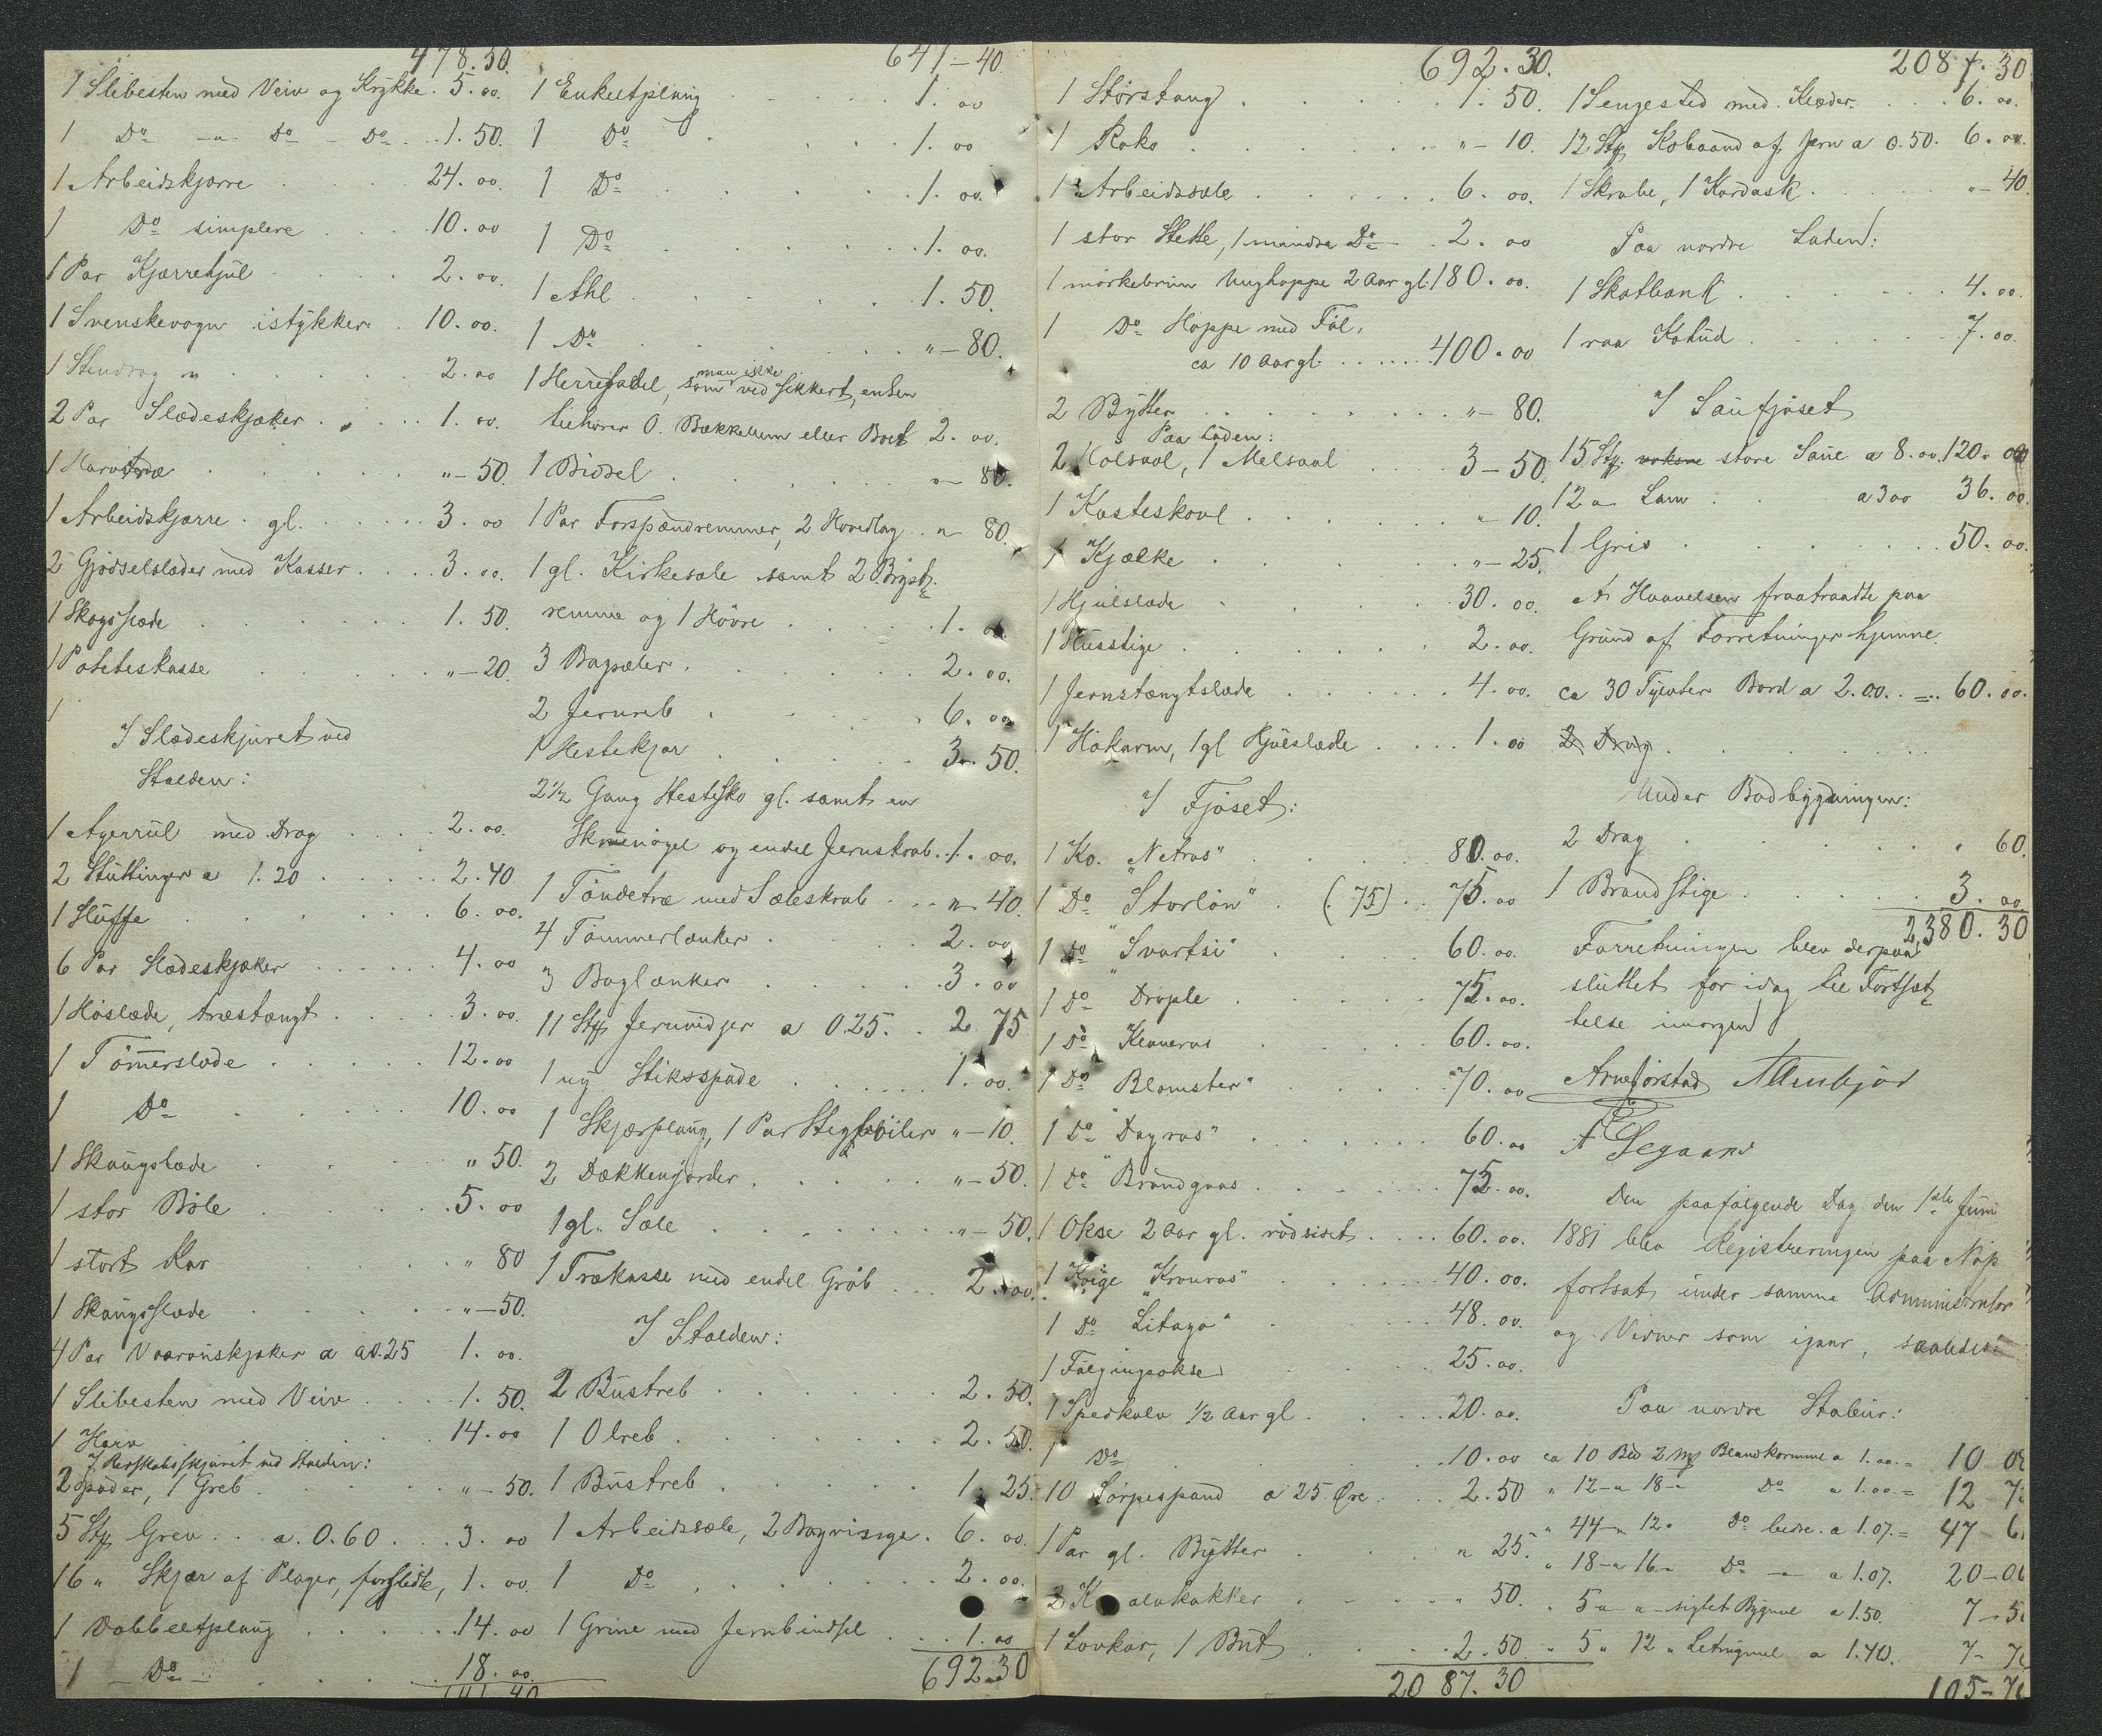 478.50.
1 Slibesten med Veiv og Krykke. 5.00.
1 Do - " - Do - Do . . 1.50.
1 Arbeidskjærre . . . 24.00.
1 Do simplere . . . 10.00
1 Par Kjærrehjul . . . 2.00.
1 Svenskevogn istykker . 10.00.
1 Stendrog " . . . 2.00
2 Par Slædeskjæker . . . 1.00.
1 Harvtræ . . . " - 50.
1 Arbeidskjærre . gl. . . . 3.00
2 Gjødselslæder med Kasser . . . 3.00.
1 Skogsslæde . . . 1.50.
1 Poteteskasse . . . " - 20.
1
I Slædeskjuret ved
Stalden:
1 Agerrul med Drag . . . 2.00.
2 Stuttinger a 1.20 . . . 2.40
1 Sluffe . . . 6.00.
6 Par Slædeskjæker . . . 4.00
1 Høslæde, træstængt . . . 3.00.
1 Tømmerslæde . . . 12.00
1 Do . . . 10.00
1 Skougslæde . . . " 50.
1 stor Bøle . . . 5.00
1 stort Kar . . . " 80
1 Skougsslæde . . . " - 50.
4 Par Vaaronskjæker a a0.25 1.00.
1 Slibesten med Veiv . . . 1.50.
1 Harv . . . 14.00
I Redskabsskjuret ved Stalden:
2 Spader, 1 Greb . . . " - 50.
5 Stk Grev . . a. 0.60 . . . 3.00
16 " Skjær af Ploger, forslidte, 1.00.
1 Dobbeltploug . . . 14.00
1 - Do - . . . 18.00.
641.40
641 - 40.
1 Enkeltploug . . . 1.00
1 Do . . . 1.00
1 Do . . . 1.00.
1 Do . . . 1.00.
1 Ahl . . . 1.50.
1 Do . . . " - 80.
1 Herresadel, som man ikke ved sikkert, enten
tilhører O. Bækkelum eller Boet 2.00.
1 Bidsel . . . " - 80.
1 Par Forspændremmer, 2 Hovedlag . . " 80.
1 gl. Kirkesæle samt 2 Bryst-
remme og 1 Høvre . . . 1.00.
3 Bagsæler . . . 2.00.
2 Jernreb . . . 6.00
1 Hestekjær . . . 3.50.
2 1/2 Gang Hestesko gl. samt en
Skruenøgel og endel Jernskrab . 1.00.
1 Tøndetræ med Sæleskrab . . . " - 40.
4 Tømmerlænker . . . 2.00
3 Baglænker . . . 3.00
11 Stk Jernvidjer a 0.25. . 2.75
1 ny Stikspade . . . 1.00.
1 Skjærploug, 1 Par Stegsbiler " - 10.
2 Dækkengjorder . . . " - 50.
1 gl. Sæle . . . " - 50.
1 Trækasse med endel Gråb . . . 2.00.
I Stalden:
2 Bustreb . . . 2.50.
1 Olreb . . . 2.50.
1 Bustreb . . . 1.25.
1 Arbeidssæle, 2 Bogringe . 6.00.
1 Do . . . 2.00.
1 Grime med Jernbindsel . . . 1.00
692.30
692.30.
1 Størstang . . . 1.50.
1 Roko . . . " - 10.
1 Arbeidssæle . . . 6.00.
1 stor Hette, 1 mindre Do . 2.00
1 mørkebrun Unghoppe 2 Aar gl. 180.00.
1 Do Hoppe med Føl,
ca 10 Aar gl. . . . 400.00
2 Bytter . . . " - 80.
Paa Laden:
2 Kolsaal, 1 Melsaal . . . 3 - 50.
1 Kasteskovl . . . " - 10.
1 Kjælke . . . " - 25.
1 Hjulslæde . . . 30.00.
1 Husstige . . . 2.00.
1 Jernstængtslæde . . . 4.00.
1 Høkarm, 1 gl Hjulslæde . . . 1.00
I Fjøset:
1 Ko. "Netros" . . . 80.00.
1 Do "Storlin" . (75) . . 75.00
1 Do "Svartsi" . . . 60.00.
1 Do Drople . . . 75.00.
1 Do Kranros . . . 60.00.
1 Do "Blomster" . . . 70.00
1 Do "Dagros" . . . 60.00
1 Do "Brandgaas . . . 75.00.
1 Okse 2 Aar gl. rødsidet . . . 60.00.
1 Kvige "Kronros" . . . 40.00.
1 Do "Litago" . . . 48.00.
1 Følgingsokse . . . 25.00.
1 Spedkalv 1/2 Aar gl . . . 20.00.
1 Do . . . 10.00
10 Sørpespand a 25 Øre . . . 2.50
1 Par gl. Bytter . . . " 25.
2 Kalvkakker . . . " 50.
1 Lovkar, 1 But . . . 2.50
2087.30
2087.30
1 Sengested med Klæder . . . 6.00.
12 Stk Kobaand af Jern a 0.50. 6.00.
1 Skrabe, 1 Kardask . . . " - 40.
Paa nordre Laden:
1 Skotbank . . . 4.00.
1 raa Kohud . . . 7.00.
I Saufjøset
15 Stk. voksne store Saue a 8.00. 120.00
12 " Lam . . a 3 00 36.00.
1 Gris . . . 50.00.
A. Haavelsen fraatraadte paa
Grund af Forretninger hjemme.
ca 30 Tylvter Bord a 2.00. . = . 60.00.
2 Drag . . .
Under Bodbygningen:
2 Drag . . . " 60.
1 Brandstige . . . 3.00.
2380.30
Forretningen blev derpaa
sluttet for idag til Fortsæt-
telse imorgen
Arne Jørstad
Den paafølgende Dag den 1ste Juni
1881 blev Registreringen paa Nøp
fortsat under samme Administrator
og Vidner som igaar, saaledes:
Paa nordre Stabur:
ca 10 Bis 2 Mk Blandkornmel a 1.00. = 10 00
" 12 - " 18 - " Do a 1.00. = 12 - 7
" 44 - " 12 " Do bedre. a 1.07. = 47 - 6
" 18 - " 16 - Do - " - a 1.07. 20 - 00
" 5 - " " - sigtet Bygmel a 1.50. 7 - 5
" 5 " 12 " Letrugmel a 1.40. 7 - 7
105 - 7